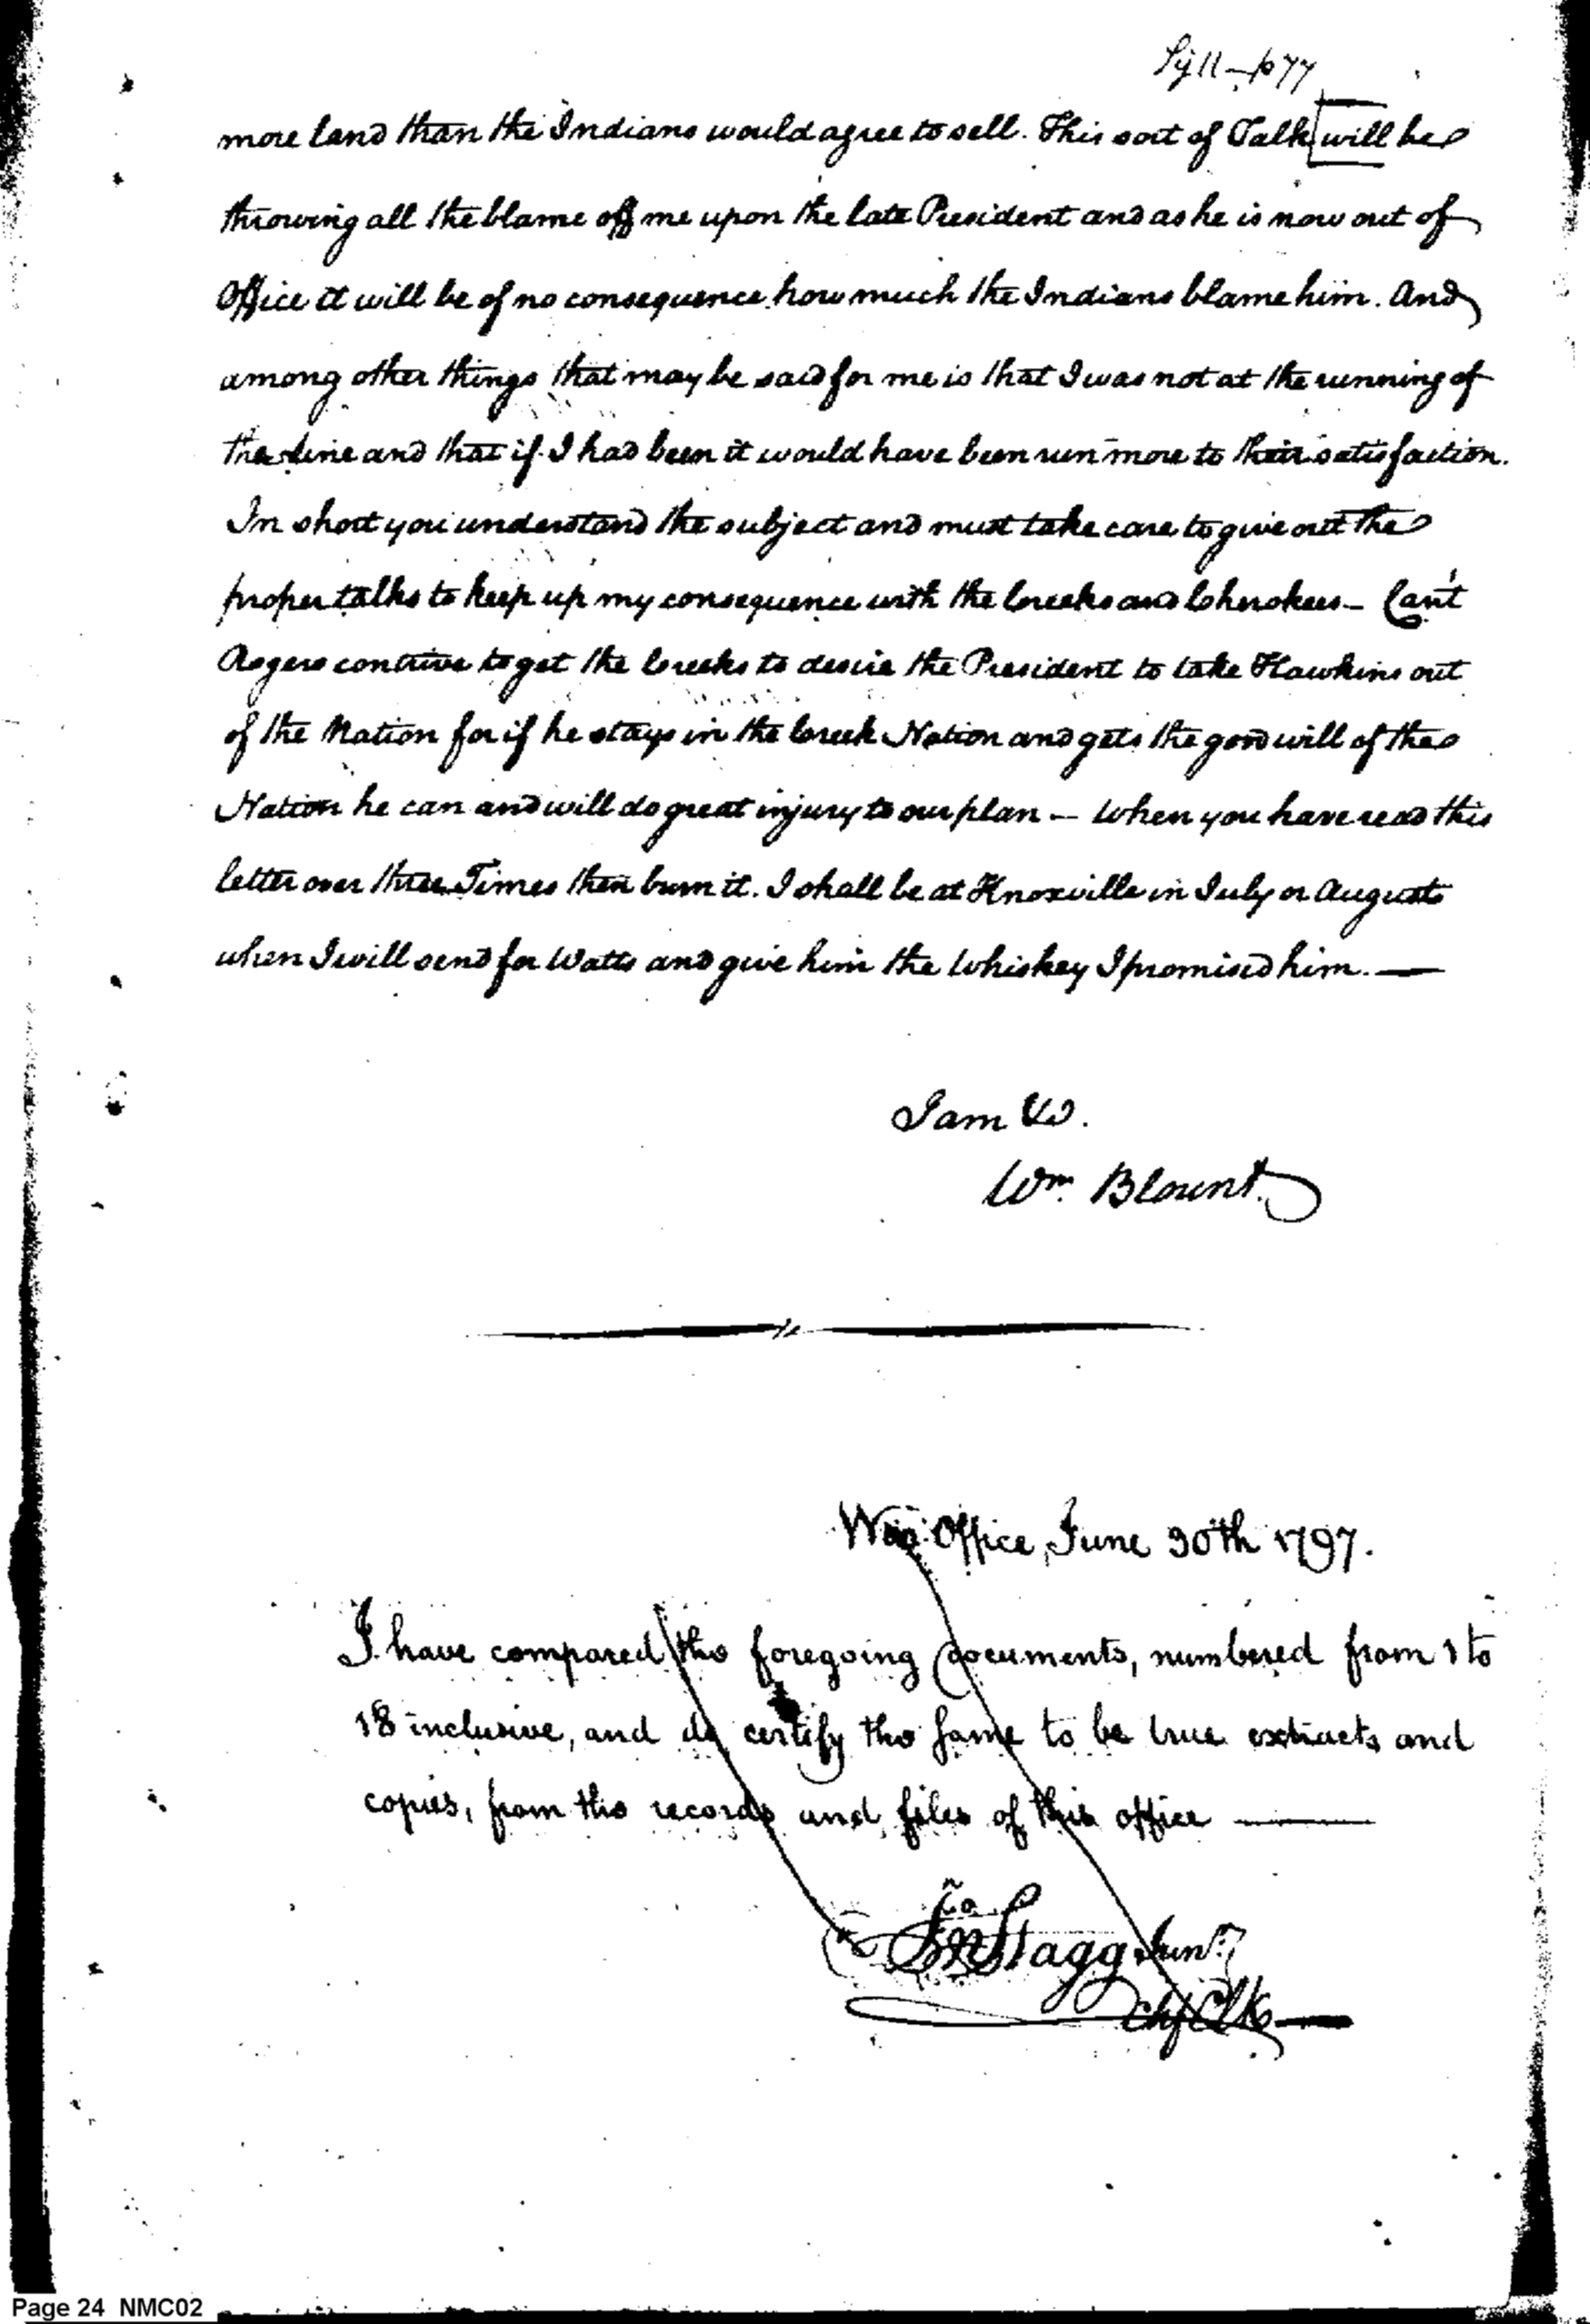 more land than the Indians would agree to sell. This sort of Talk will be
throwing all the blame off me upon the late President and as he is now out of
Office it will be of no consequence how much the Indians blame him. And
among other things that may be said for me is that I was not at the running of
the line and that if I had been it would have been run more to their satisfaction.
In short you understand the subject and must take care to give out the
proper talks to keep up my consequence with the Creeks and Cherokees - Can't
Rogers contrive to get the Creeks to desire the President to take Hawkins out
of the Nation for if he stays in the Creek Nation and gets the good will of the
Nation he can and will do great injury to our plan - When you have read this
letter over three Times then burn it. I shall be at Knoxville in July or August
when I will send for Watts and give him the Whiskey I promised him. —
I am &c.
Wm. Blount
War Office, June 30th 1797.
I have compared the foregoing documents, numbered from 1 to
18 inclusive, and do certify the same to be true extracts and
copies, from the records and files of this office —
Jno Stagg Junr.
Chf Clk —
Page 24 NMC02